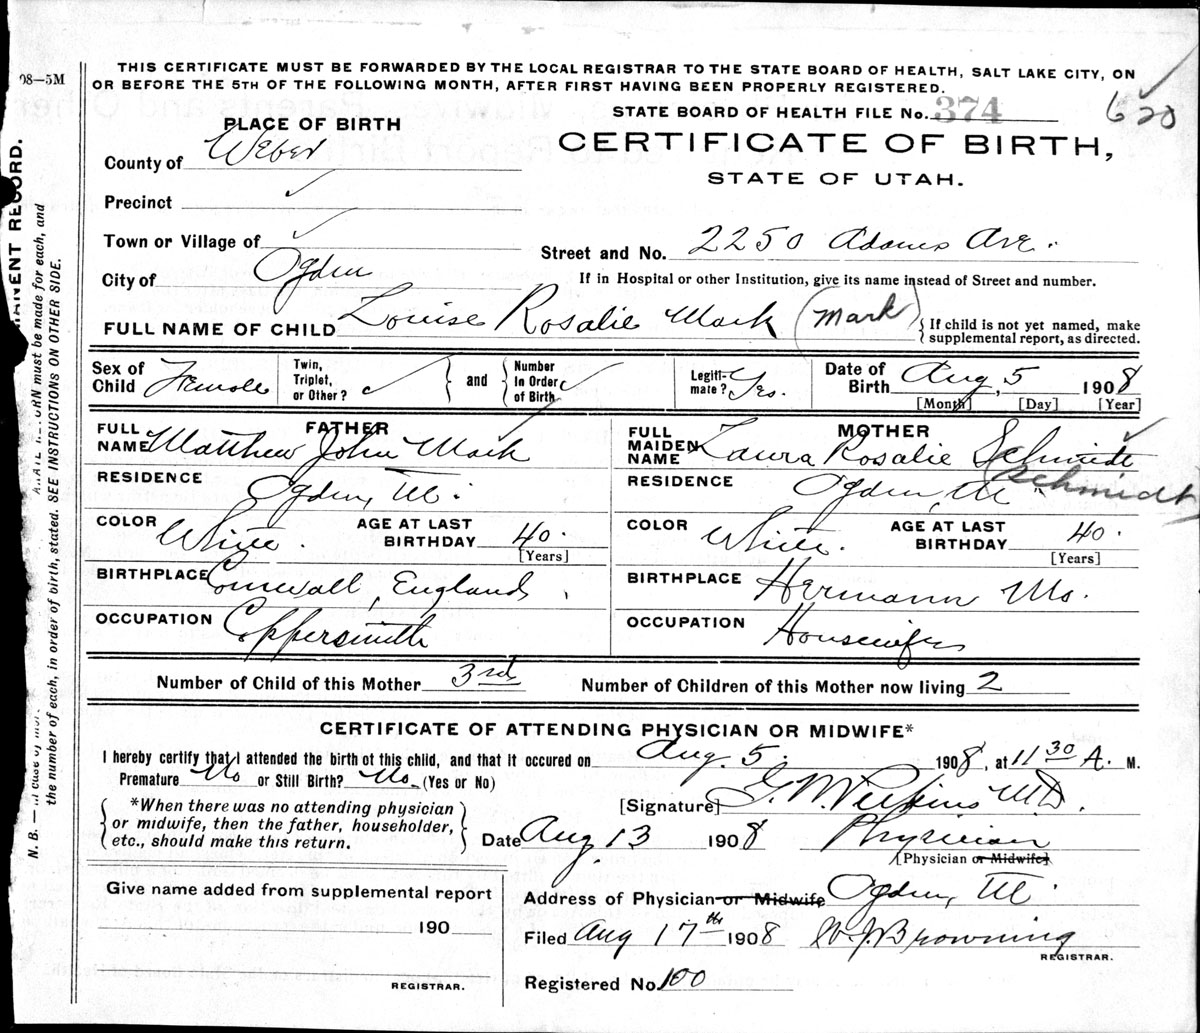 08—5M
THIS CERTIFICATE MUST BE FORWARDED BY THE LOCAL REGISTRAR TO THE STATE BOARD OF HEALTH, SALT LAKE CITY, ON
OR BEFORE THE 5TH OF THE FOLLOWING MONTH, AFTER FIRST HAVING BEEN PROPERLY REGISTERED.
STATE BOARD OF HEALTH FILE No. 374
620
PLACE OF BIRTH
CERTIFICATE OF BIRTH,
STATE OF UTAH.
County of Weber
Precinct ✓
Town or Village of ✓
Street and No. 2250 Adams Ave.
City of Ogden
If in Hospital or other Institution, give its name instead of Street and number.
FULL NAME OF CHILD Louise Rosalie Mark (Mark)
{ If child is not yet named, make
supplemental report, as directed.
Sex of Child Female
Twin, Triplet, or Other? ✓
and
Number In Order of Birth ✓
Legiti- mate? Yes.
Date of Birth Aug 5, 1908
[Month] [Day] [Year]
FATHER
FULL NAME Matthew John Mark
RESIDENCE Ogden, Ut.
COLOR White.
AGE AT LAST BIRTHDAY 40.
[Years]
BIRTHPLACE Cornwall, England.
OCCUPATION Coppersmith
MOTHER
FULL MAIDEN NAME Laura Rosalie Schmidt
Schmidt
RESIDENCE Ogden, Ut.
COLOR White.
AGE AT LAST BIRTHDAY 40.
[Years]
BIRTHPLACE Hermann Mo.
OCCUPATION Housewife
Number of Child of this Mother 3rd
Number of Children of this Mother now living 2
CERTIFICATE OF ATTENDING PHYSICIAN OR MIDWIFE*
I hereby certify that I attended the birth of this child, and that it occured on Aug. 5. 1908, at 11 30 A. M.
Premature No or Still Birth? No. (Yes or No)
{ *When there was no attending physician
or midwife, then the father, householder,
etc., should make this return. }
[Signature] G. M. Perkins MD.
Date Aug. 13 1908
Physician
[Physician or Midwife]
Give name added from supplemental report
190
REGISTRAR.
Address of Physician or Midwife Ogden, Ut.
Filed Aug 17th 1908 W. J. Browning
REGISTRAR.
Registered No. 100
ANENT RECORD.
RN must be made for each, and
the number of each, in order of birth, stated. SEE INSTRUCTIONS ON OTHER SIDE.
N. B.—